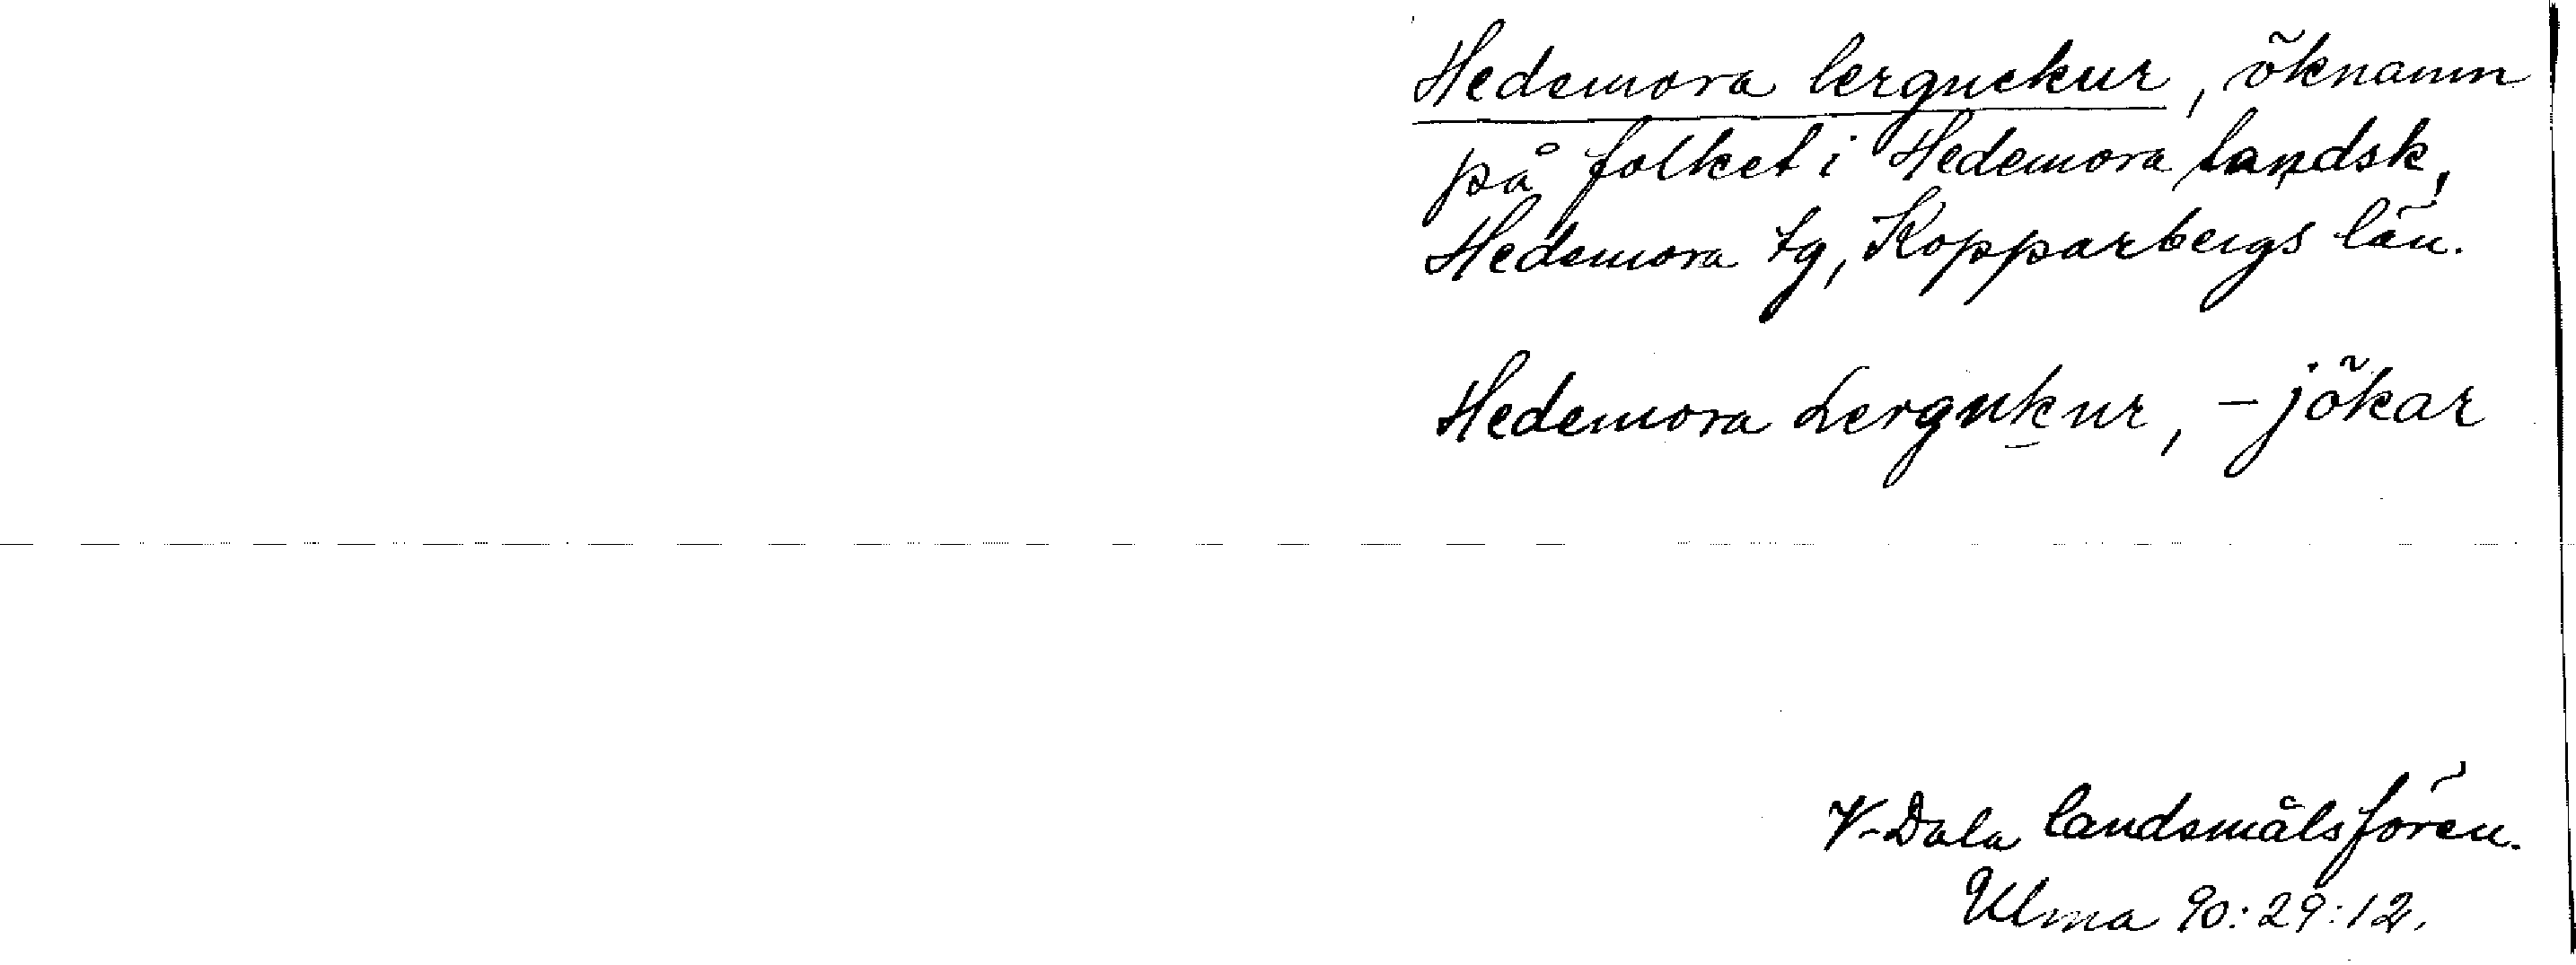 Hedemora lerguckur, öknamn
på folket i Hedemora landsk,
Hedemora tg, Kopparbergs län.
Hedemora Lergukur, - jökar
V-Dala landsmålsfören.
Ulma 90:29:12.